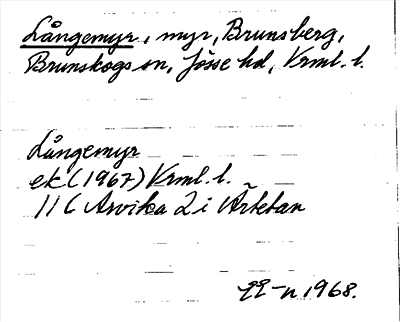 Långemyr, myr, Brunsberg,
Brunskogs sn, Jösse hd, Vrml. l.
Långemyr
ek (1967) Vrml. l.
11 C Arvika 2 i Ärtetan
1968.